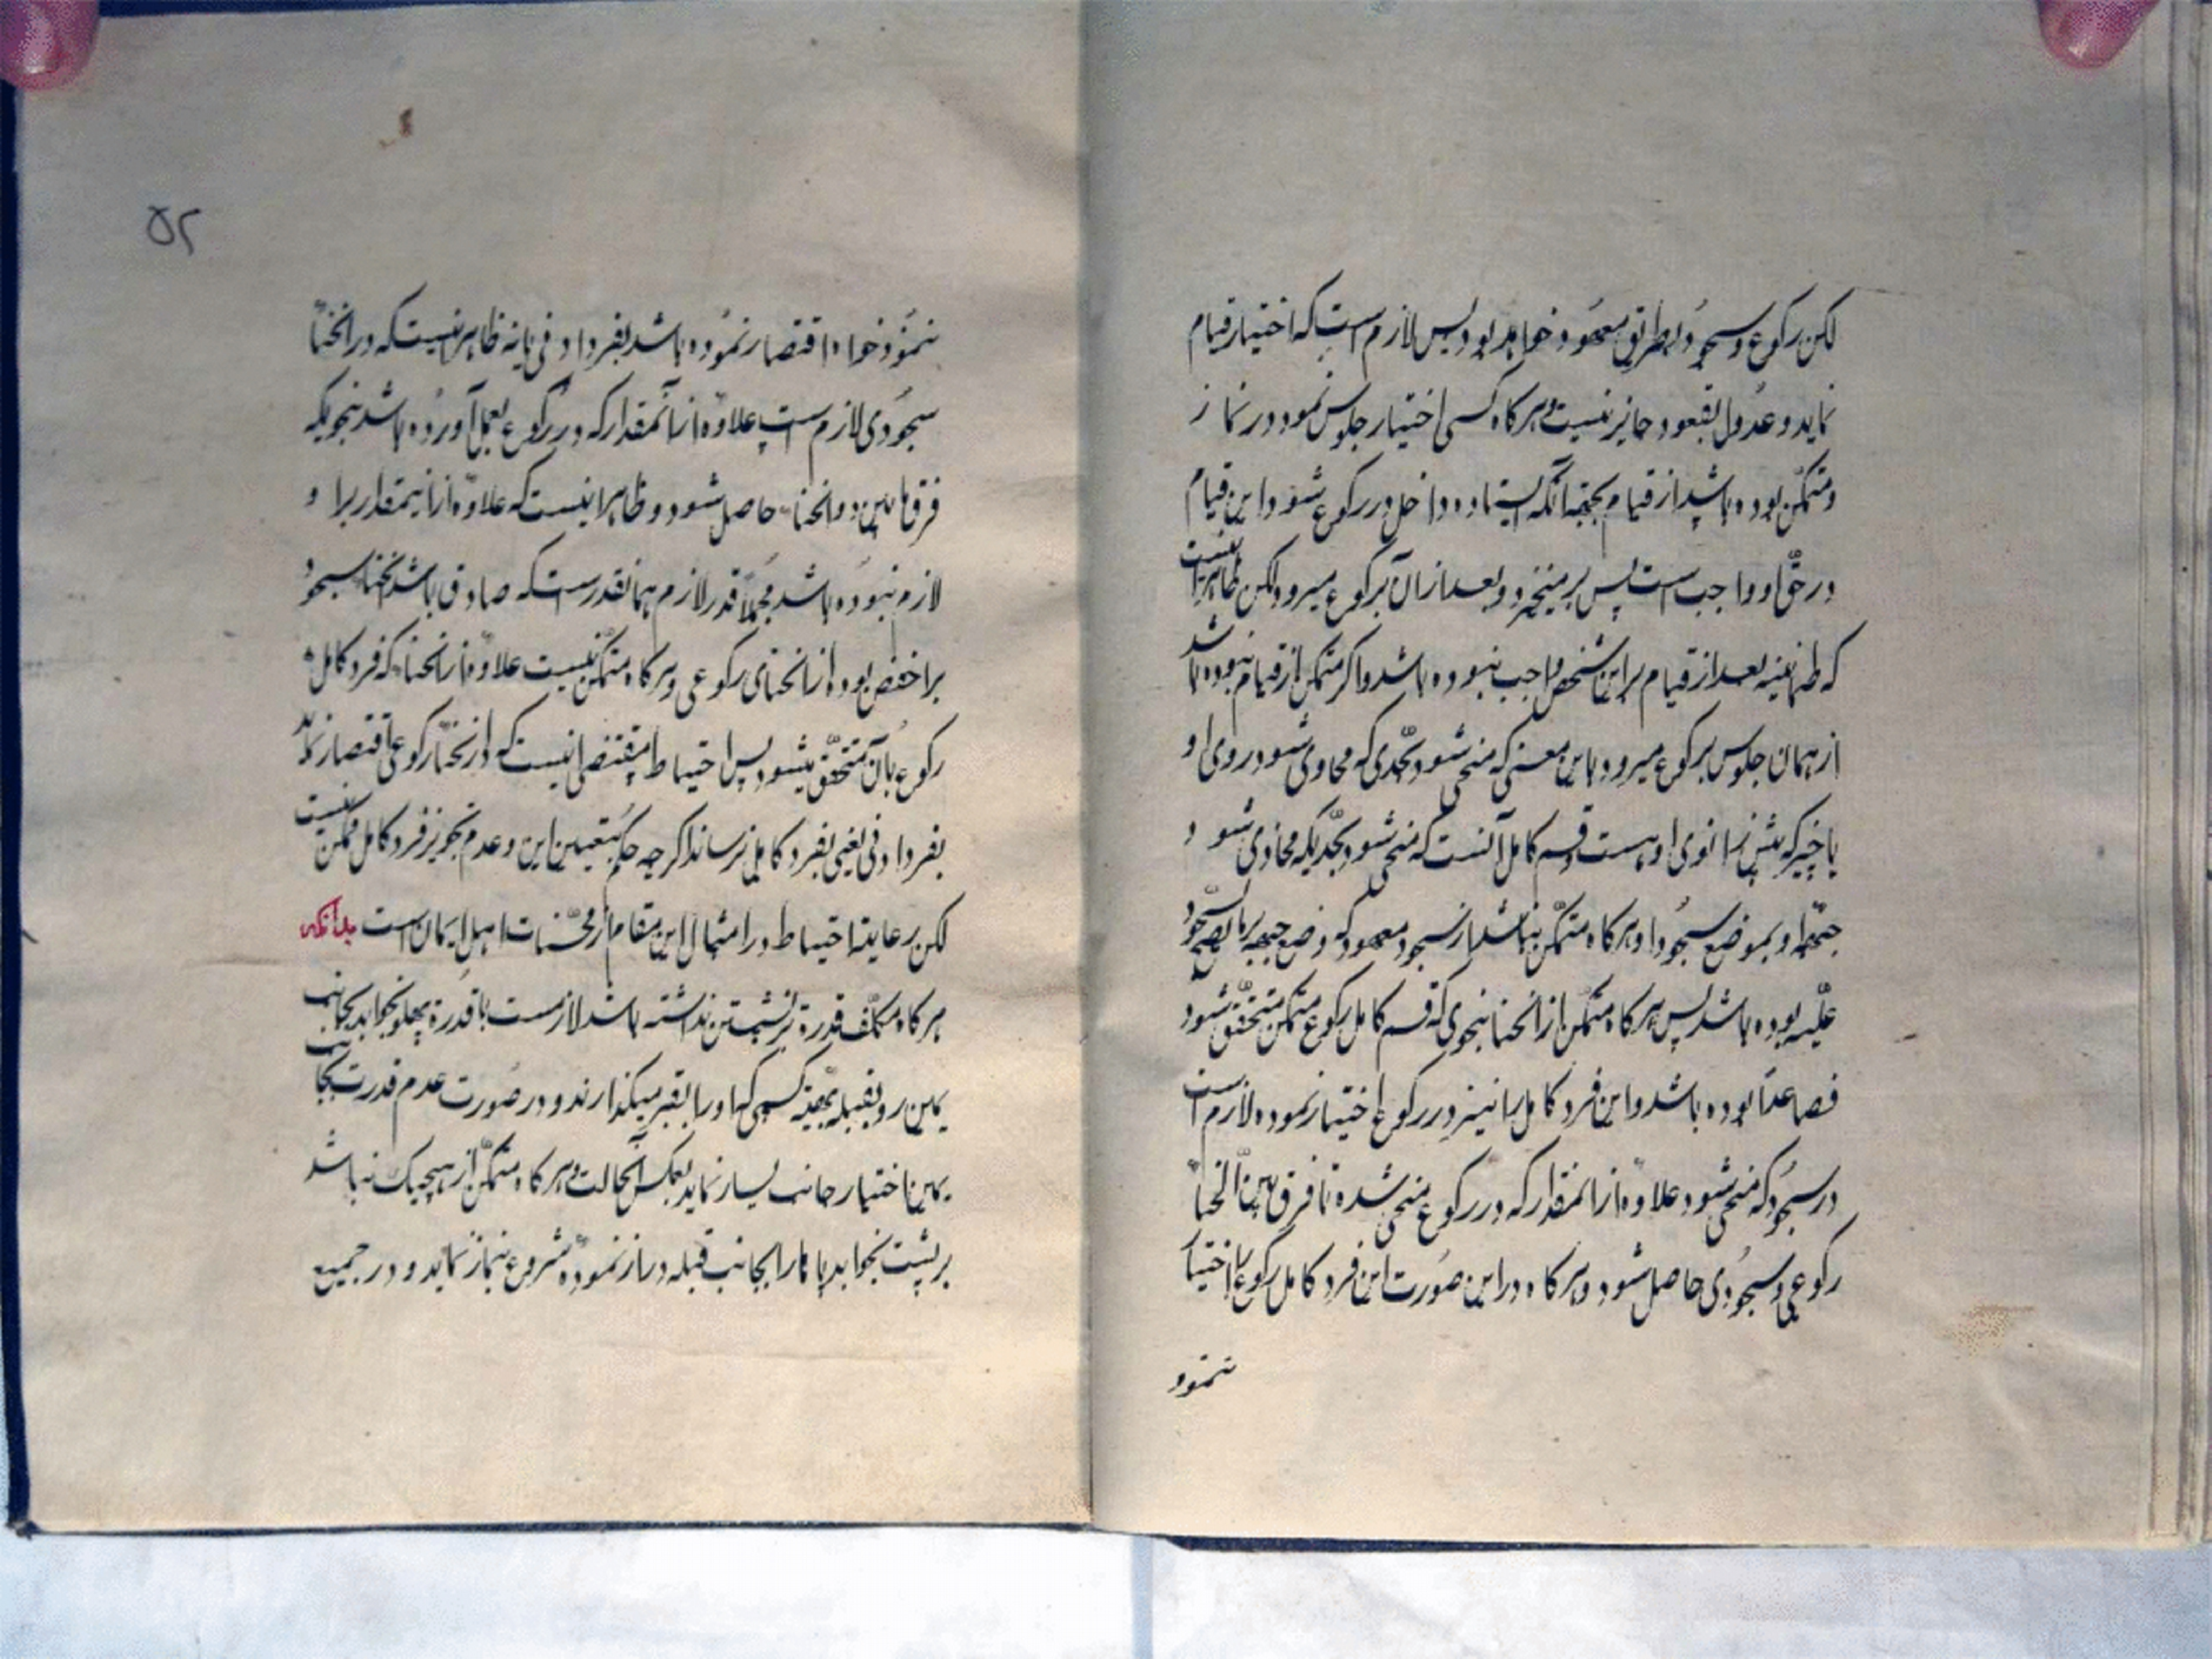 لکن رکوع و سجود بطریق معهود خواهد بود پس لازم است که اختیار قیام
نماید و عدول بقعود جایز نیست و هرکاه کسی اختیار جلوس نمود در نماز
و متمکن بوده باشد از قیام بجهة آنکه ایستاده داخل در رکوع شود این قیام
در حق او واجب است پس برمیخیزد و بعد از آن برکوع میرود لکن ظاهر اینست
که طمانینه بعد از قیام بر این شخص واجب نبوده باشد و اکر متمکن از قیام نبوده باشد
از همان جلوس برکوع میرود باین معنی که منحنی شود بحدی که محاذی شود روی او
با چیزیکه پیش زانوی او هست و قسم کامل آنست که منحنی شود بحدیکه محاذی شود
جبههٔ او بموضع سجود او هرکاه متمکن نباشد از سجود معهود که وضع جبهه بر ما یصح السجود
علیه بوده باشد پس هرکاه متمکن از انحنا بنحوی که قسم کامل رکوع متمکن متحقق شود
فصاعدا بوده باشد و این فرد کامل را نیز در رکوع اختیار نموده لازم است
در سجود که منحنی شود علاوه از آنمقدار که در رکوع منحنی شده تا فرق بین انحناء
رکوعی و سجودی حاصل شود و هرکاه در این صورت این فرد کامل رکوع را اختیار
ننمود
۵۲
ننمود خواه اقتصار نموده باشد بفرد ادنی یا نه ظاهر اینست که در انحناء
سجودی لازم است علاوه از آنمقدار که در رکوع بعمل آورده باشد بنحویکه
فرق مابین دو انحناء حاصل شود و ظاهر اینست که علاوه از اینمقدار بر او
لازم نبوده باشد مجملا قدر لازم همانقدر است که صادق باشد انحناء سجود
بر اخفض بوده از انحنای رکوعی و هرکاه متمکن نیست علاوه از انحناء که فرد کامل
رکوع بآن متحقق میشود پس احتیاط مقتضی اینست که در انحناء رکوعی اقتصار نماید
بفرد ادنی یعنی بفرد کامل نرساند اکرچه حکم بتعیین این و عدم تجویز فرد کامل ممکن نیست
لکن رعایة احتیاط در امثال این مقام از محسنات اهل ایمان است بدانکه
هرکاه مکلف قدرة بر نشستن نداشته باشد لازمست با قدرة بپهلو بخوابد بجانب
یمین رو بقبله بهیئة کسی که او را بقبر میکذارند و در صورت عدم قدرت بجانب
یمین اختیار جانب یسار نماید بعکس آنحالت و هرکاه متمکن از هیچیک نباشد
بر پشت بخوابد پاها را بجانب قبله دراز نموده شروع بنماز نماید و در جمیع